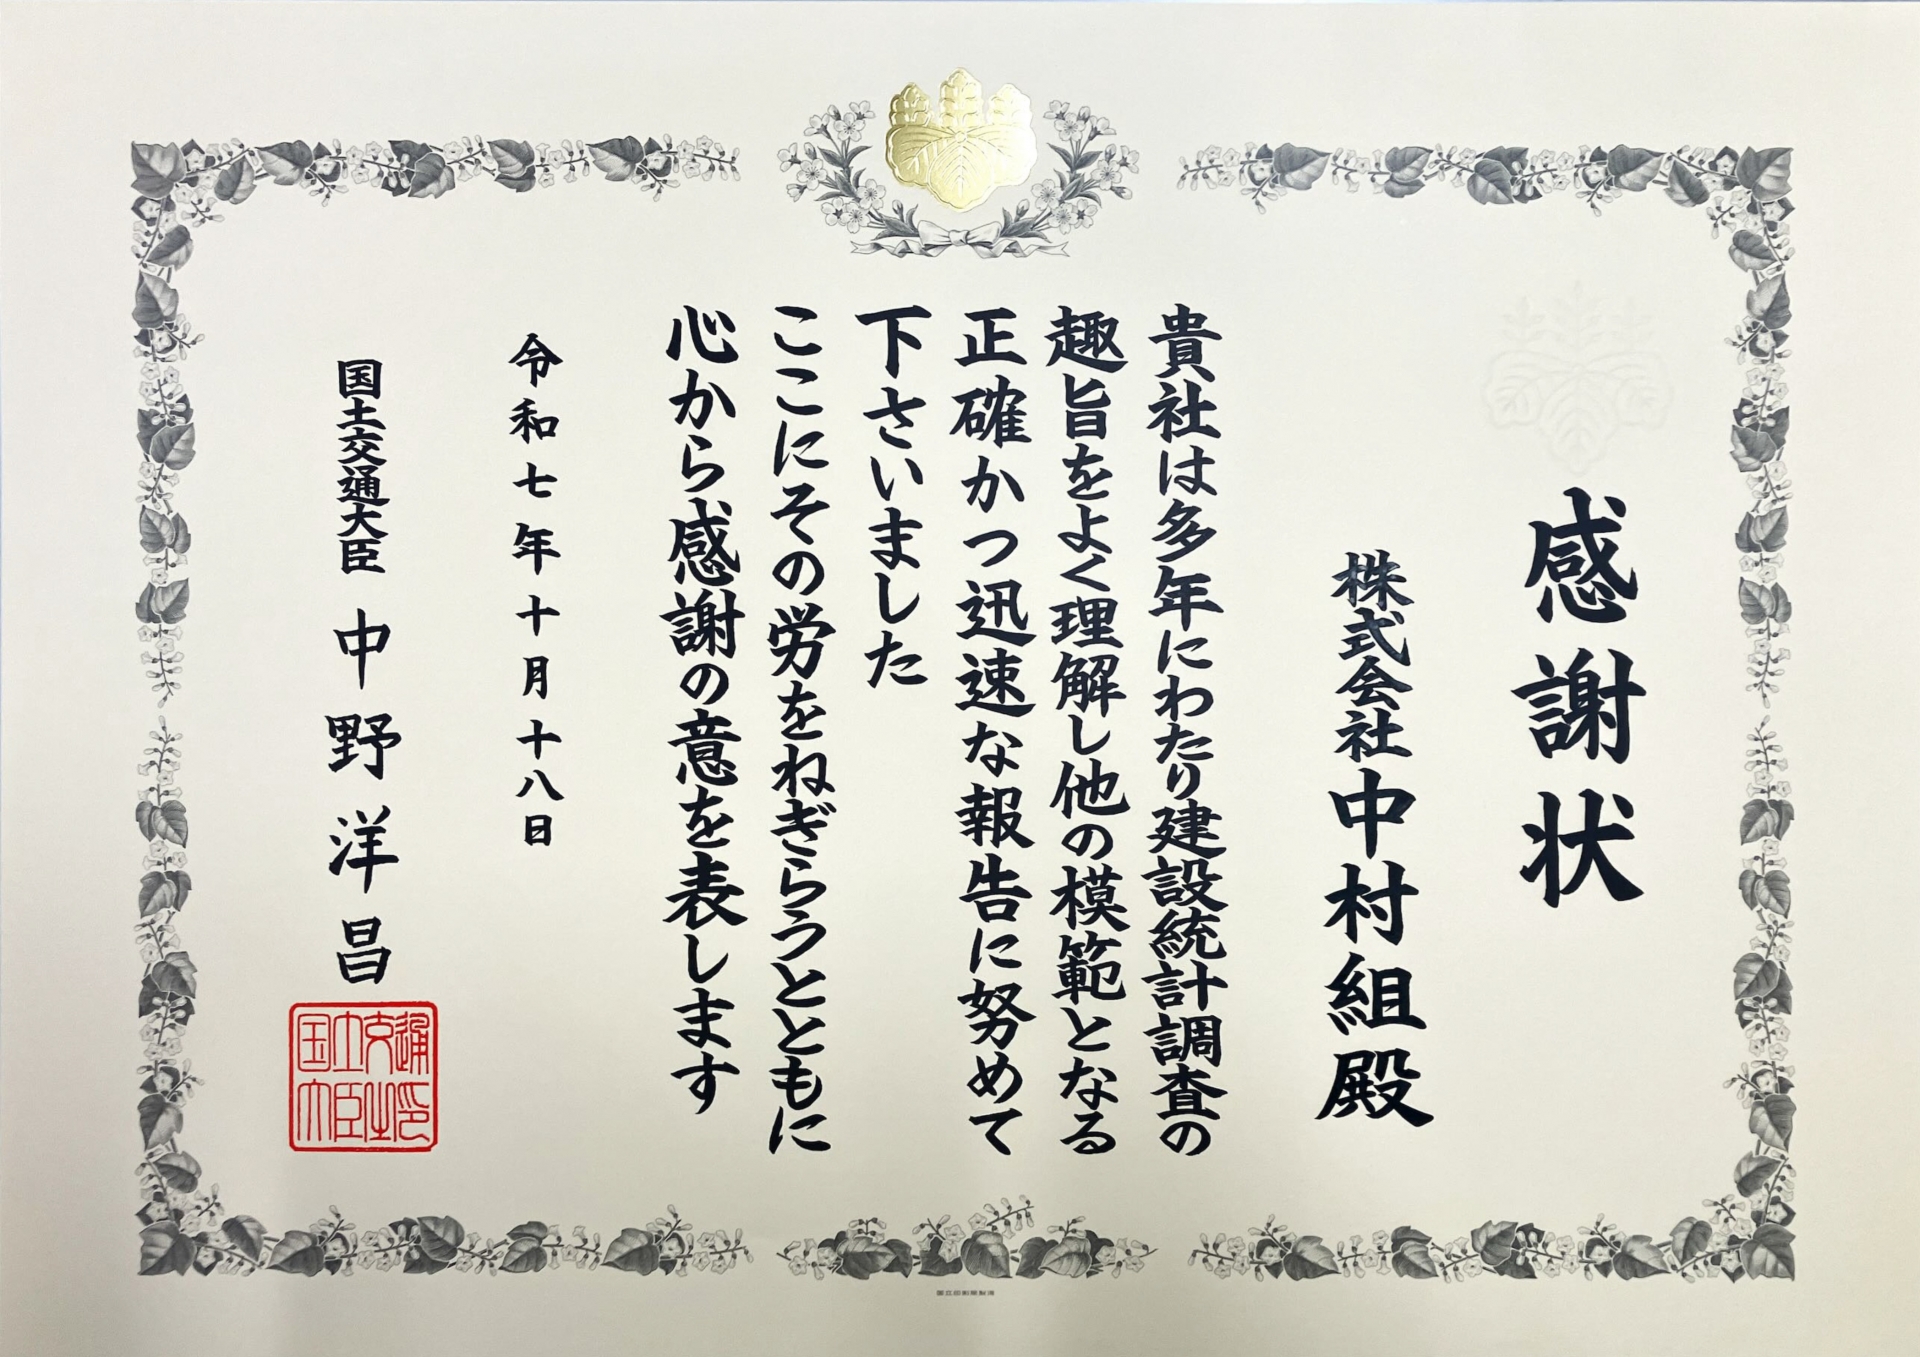 感謝状
株式会社中村組殿
貴社は多年にわたり建設統計調査の
趣旨をよく理解し他の模範となる
正確かつ迅速な報告に努めて
下さいました
ここにその労をねぎらうとともに
心から感謝の意を表します
令和七年十月十八日
国土交通大臣 中野洋昌
国土交通
大臣之印
国立印刷局製造